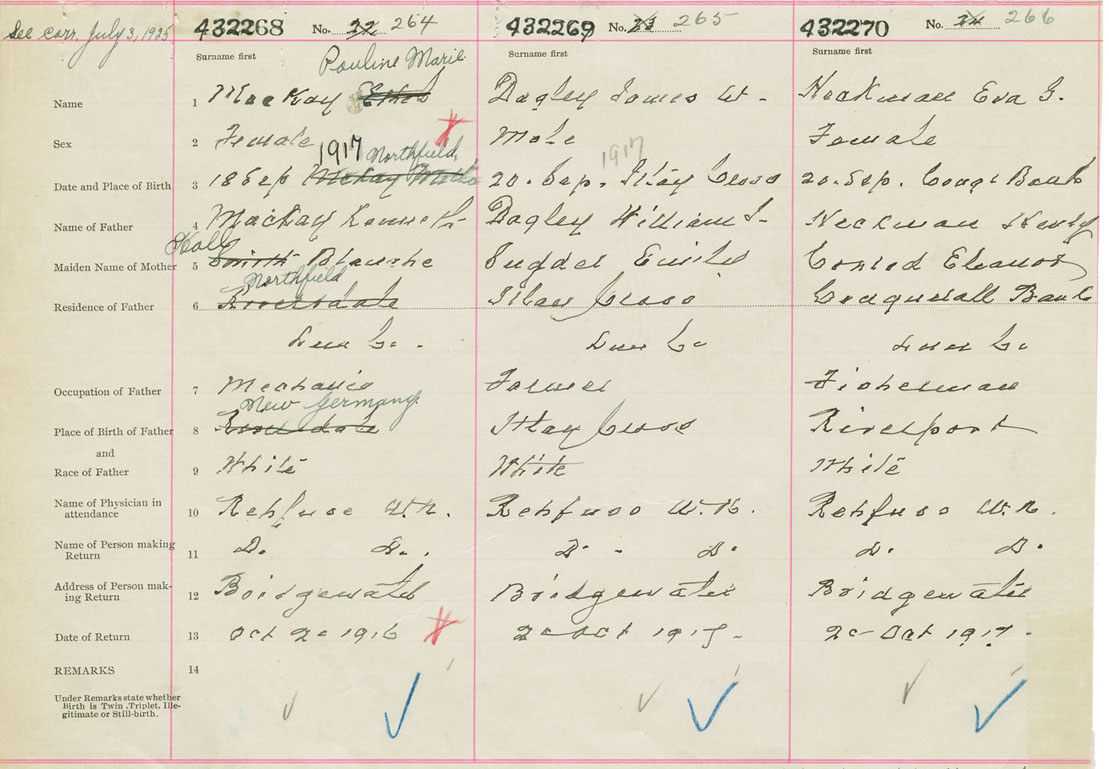 See corr. July 3, 1925
432268 No. 264
432269 No. 265
432270 No. 266
Surname first Surname first Surname first
Pauline Marie
Name 1 MacKay Ethel Dagley James W. Heckman Eva G.
Sex 2 Female Male Female
1917 Northfield, 1917
Date and Place of Birth 3 18 Sep 20. Sep. 20. Sep.
Name of Father 4 Mackay Kenneth Dagley William Heckman Henry
Hall
Maiden Name of Mother 5 Smith Blanche Conrad Eleanor
Northfield
Residence of Father 6 Riversdale
Lun Co. Lun Co Lun Co
Occupation of Father 7 Mechanic Farmer Fisherman
New Germany
Place of Birth of Father 8 Riversdale Riverport
and
Race of Father 9 White White White
Name of Physician in
attendance 10 Rehfuse W.N. Rehfuss W.N. Rehfuss W.N.
Name of Person making
Return 11 D. D. D. D. D. D.
Address of Person mak-
ing Return 12 Bridgewater Bridgewater Bridgewater
Date of Return 13 Oct 20 1916 20 Oct 20 Oct 1917
REMARKS 14
Under Remarks state whether
Birth is Twin, Triplet, Ille-
gitimate or Still-birth.